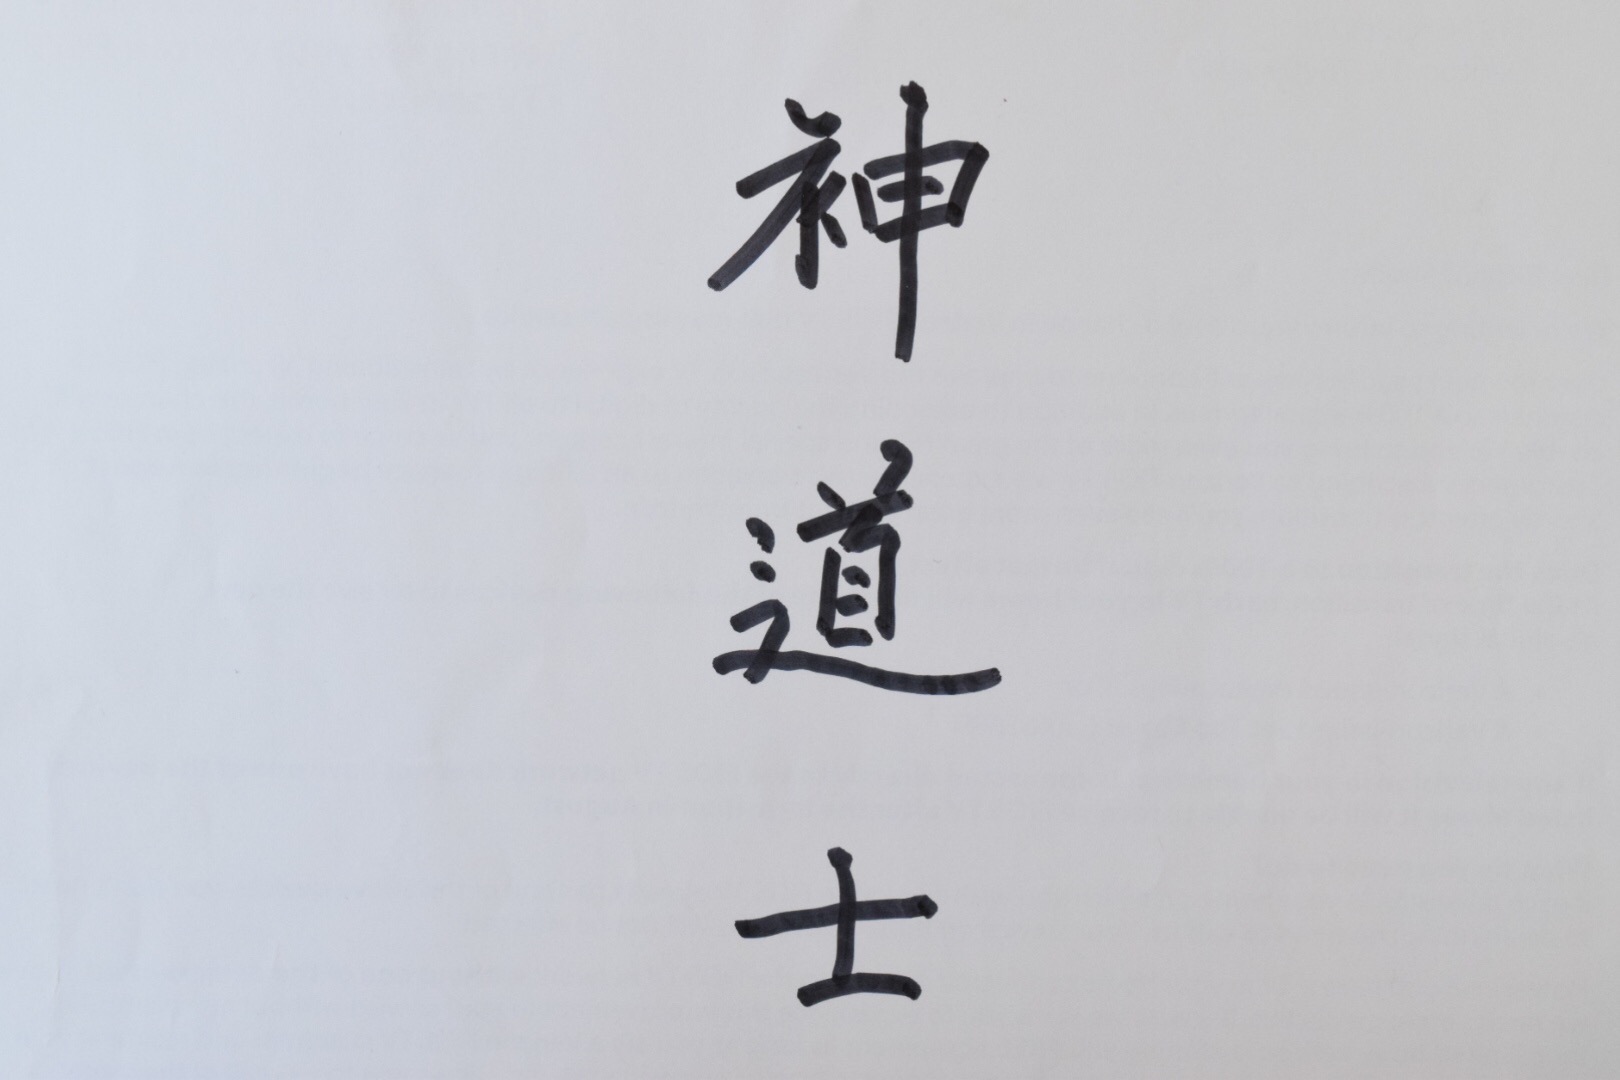 神道士